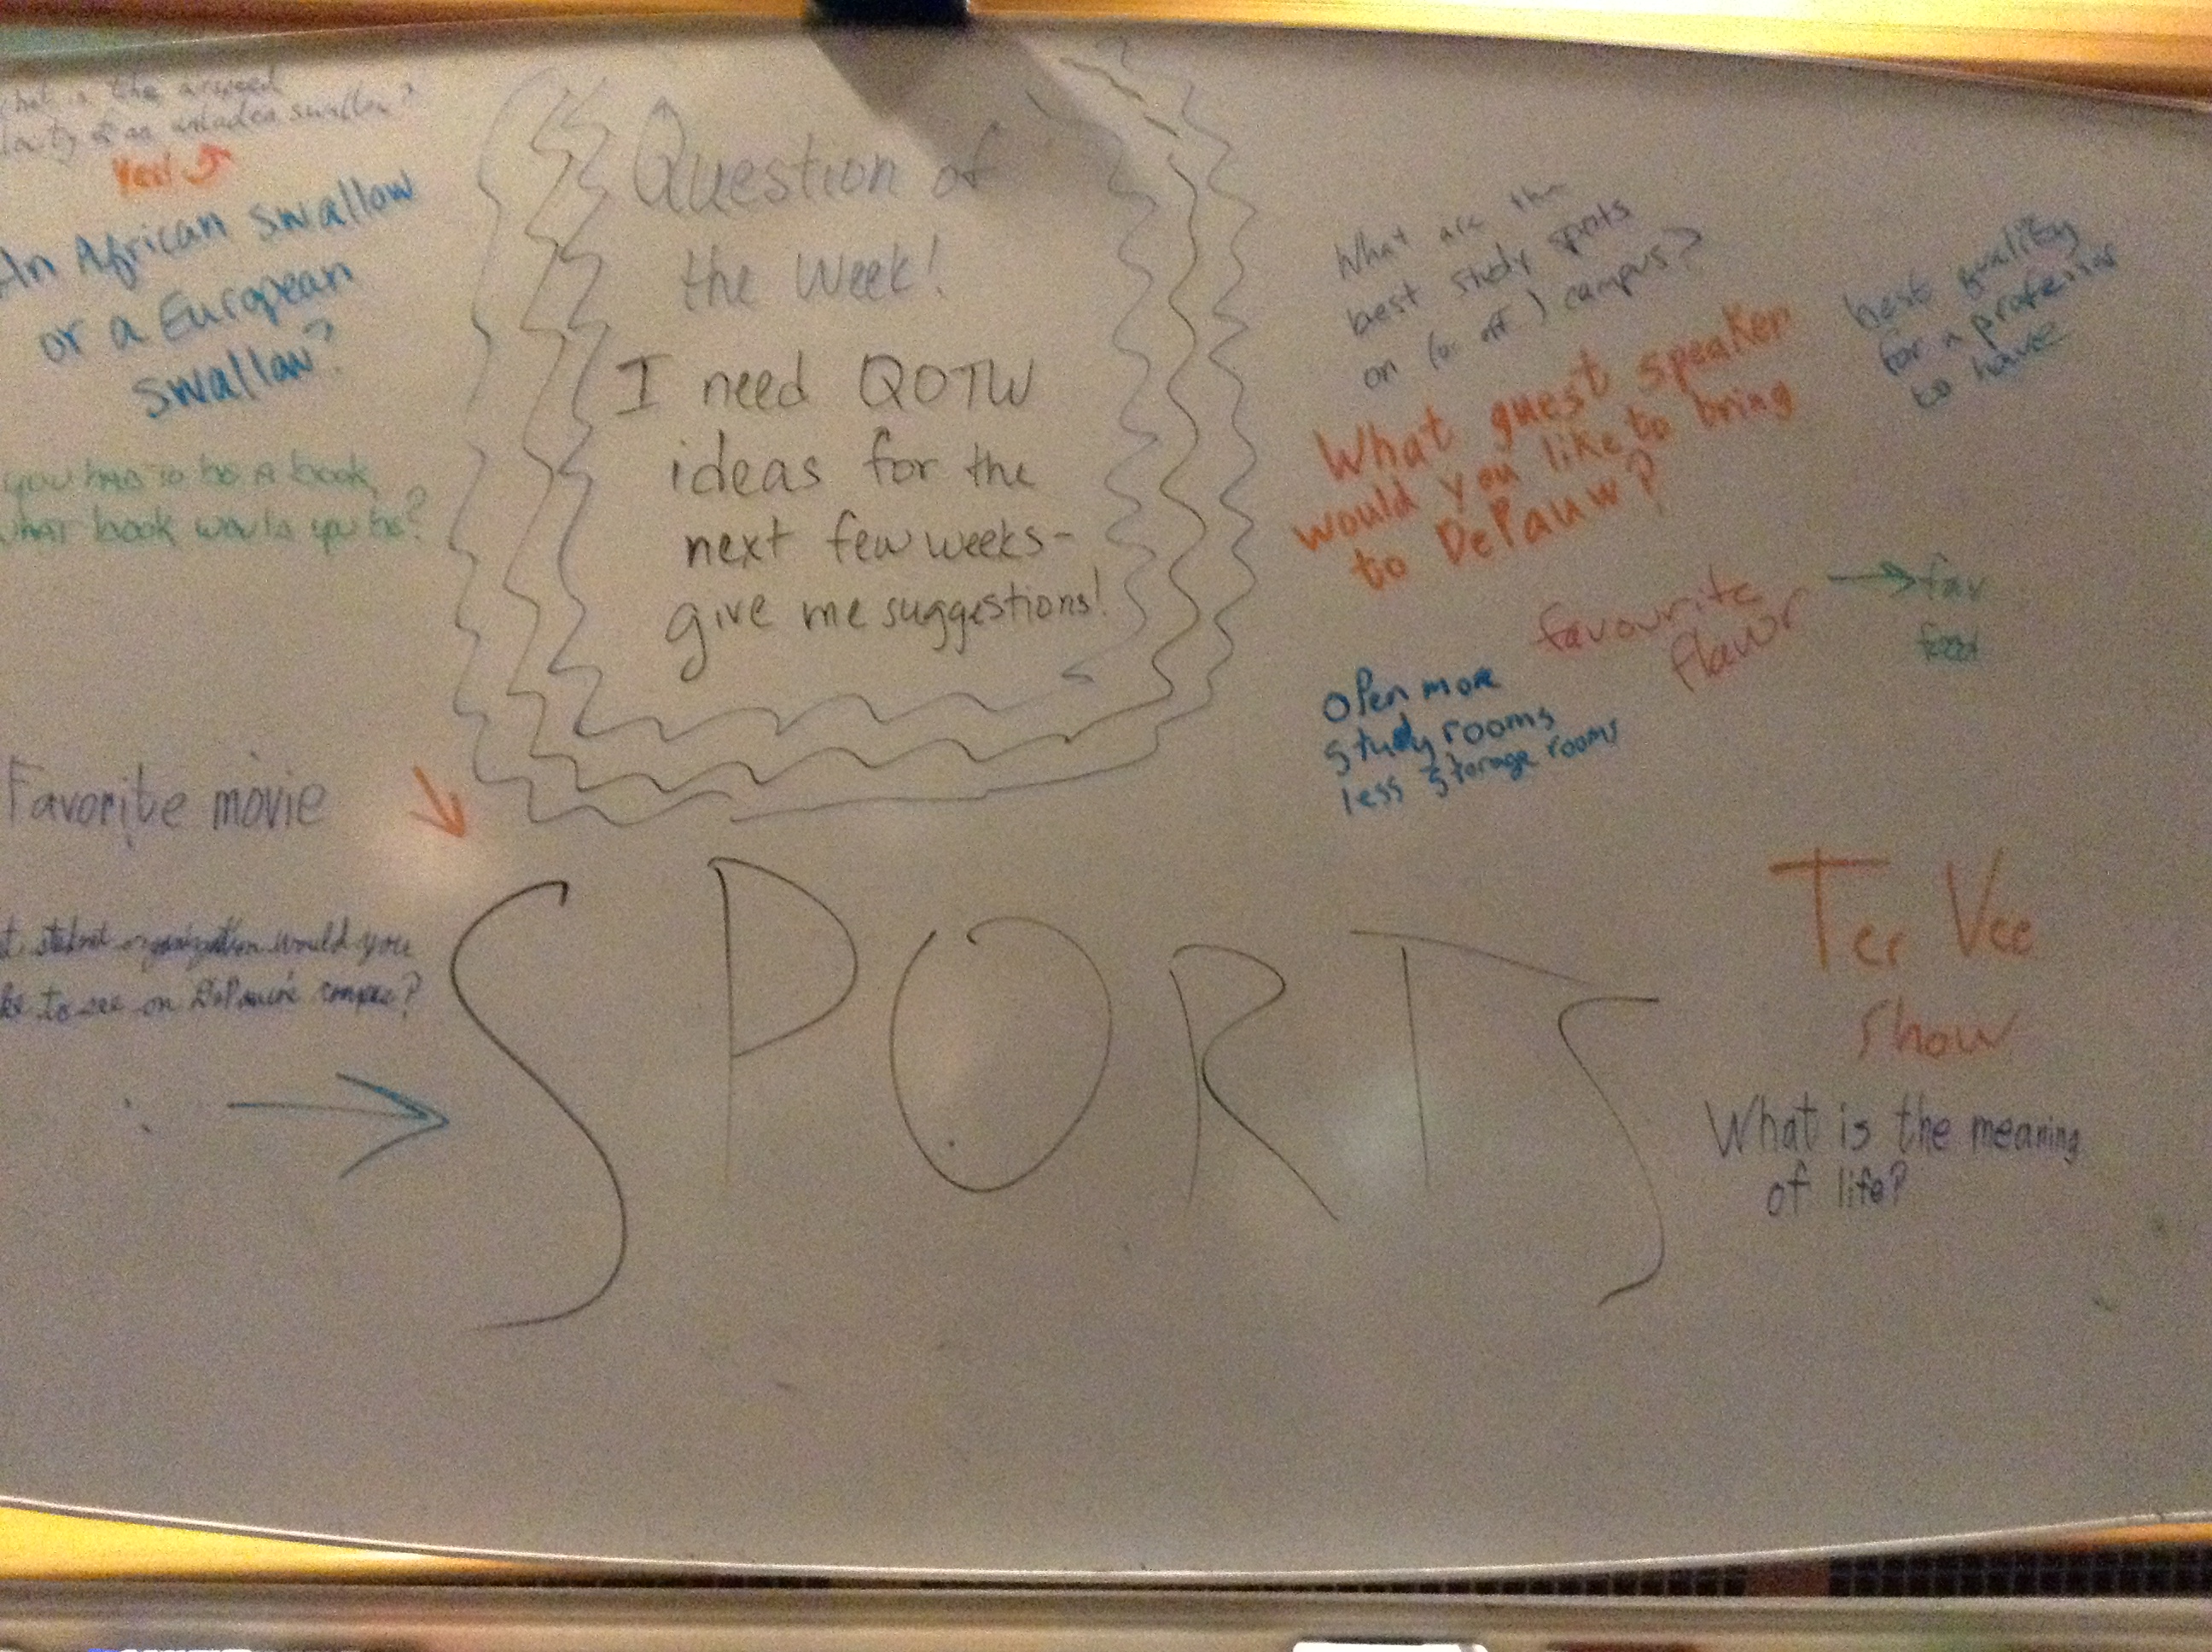 the airspeed
of an unladen swallow?
Yes!
An African swallow
or a European
swallow?
you had to be a book,
what book would you be?
Favorite movie
student organization would you
to see on DePauw's campus?
Question of
the Week!
I need QOTW
ideas for the
next few weeks-
give me suggestions!
SPORTS
What are the
best study spots
on (or off) campus?
best quality
for a professor
to have
What guest speaker
would you like to bring
to DePauw?
favourite
flavor
fav
food
open more
study rooms
less storage rooms
Ter Vee
Show
What is the meaning
of life?